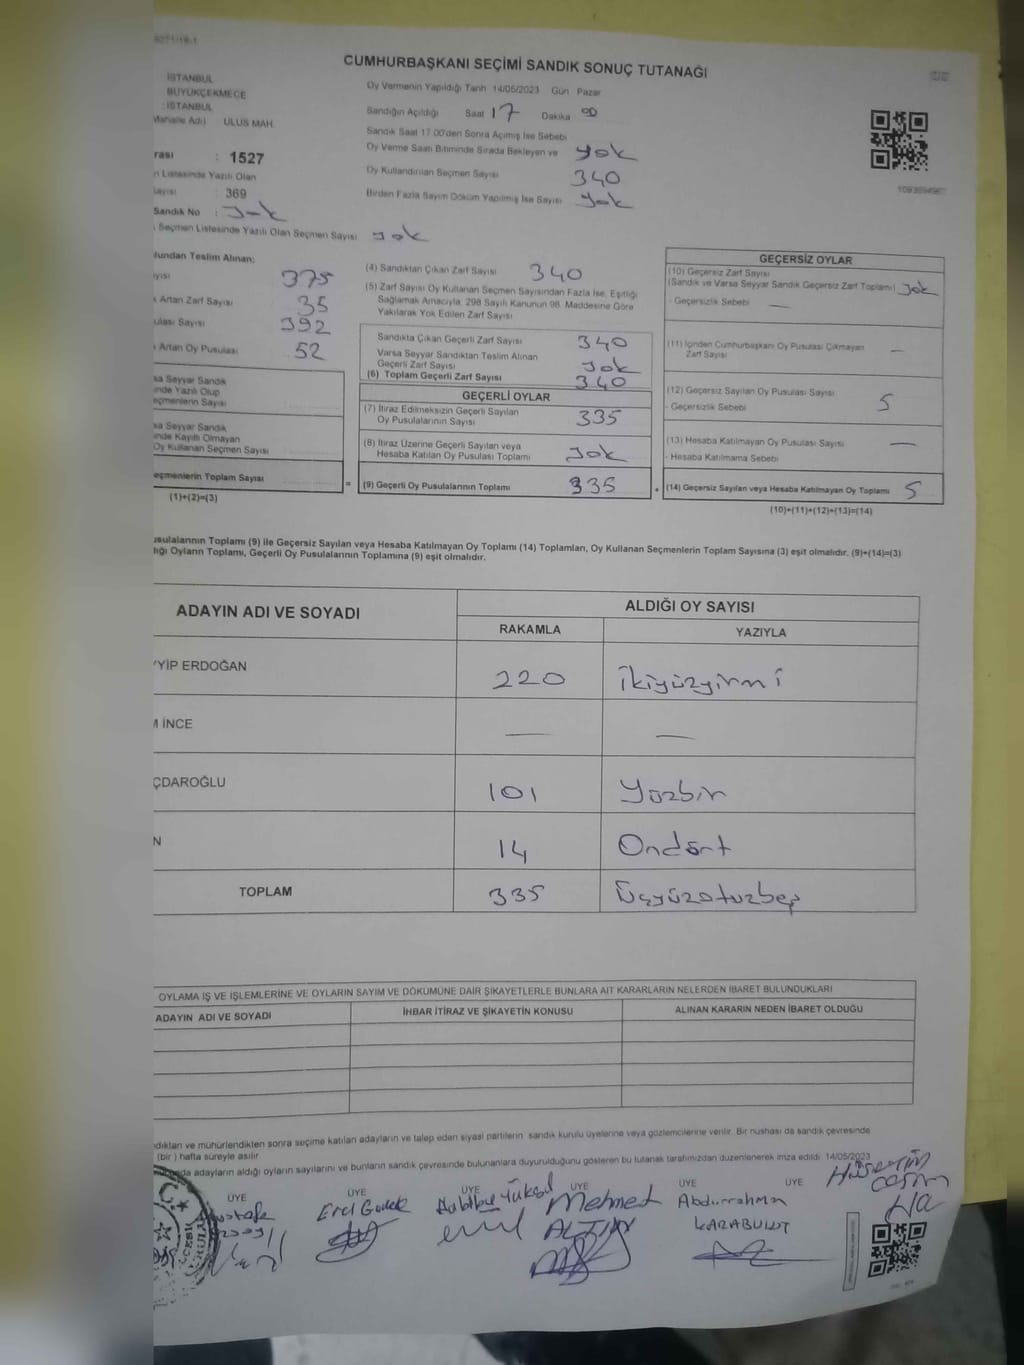 CUMHURBAŞKANI SEÇİMİ SANDIK SONUÇ TUTANAĞI
İSTANBUL
BÜYÜKÇEKMECE
: İSTANBUL
Mahalle Adı) ULUS MAH.
rası : 1527
n Listesinde Yazılı Olan
sayısı : 369
Sandık No : Yok
Seçmen Listesinde Yazılı Olan Seçmen Sayısı Yok
Oy Vermenin Yapıldığı Tarih 14/05/2023 Gün Pazar
Sandığın Açıldığı Saat 17 Dakika 00
Sandık Saat 17.00'den Sonra Açılmış İse Sebebi
Oy Verme Saati Bitiminde Sırada Bekleyen ve Yok
Oy Kullandırılan Seçmen Sayısı 340
Birden Fazla Sayım Döküm Yapılmış İse Sayısı Yok
fundan Teslim Alınan;
ayısı 375
k Artan Zarf Sayısı 35
ulası Sayısı 392
k Artan Oy Pusulası 52
sa Seyyar Sandık
inde Yazılı Olup
eçmenlerin Sayısı
sa Seyyar Sandık
inde Kayıtlı Olmayan
Oy Kullanan Seçmen Sayısı
eçmenlerin Toplam Sayısı
(1)+(2)=(3)
(4) Sandıktan Çıkan Zarf Sayısı 340
(5) Zarf Sayısı Oy Kullanan Seçmen Sayısından Fazla İse, Eşitliği
Sağlamak Amacıyla, 298 Sayılı Kanunun 98. Maddesine Göre
Yakılarak Yok Edilen Zarf Sayısı
Sandıkta Çıkan Geçerli Zarf Sayısı 340
Varsa Seyyar Sandıktan Teslim Alınan
Geçerli Zarf Sayısı Yok
(6) Toplam Geçerli Zarf Sayısı 340
GEÇERLİ OYLAR
(7) İtiraz Edilmeksizin Geçerli Sayılan
Oy Pusulalarının Sayısı 335
(8) İtiraz Üzerine Geçerli Sayılan veya
Hesaba Katılan Oy Pusulası Toplamı Yok
= (9) Geçerli Oy Pusulalarının Toplamı 335
GEÇERSİZ OYLAR
(10) Geçersiz Zarf Sayısı
(Sandık ve Varsa Seyyar Sandık Geçersiz Zarf Toplamı) Yok
- Geçersizlik Sebebi —
(11) İçinden Cumhurbaşkanı Oy Pusulası Çıkmayan
Zarf Sayısı —
(12) Geçersiz Sayılan Oy Pusulası Sayısı 5
- Geçersizlik Sebebi
(13) Hesaba Katılmayan Oy Pusulası Sayısı —
- Hesaba Katılmama Sebebi
+ (14) Geçersiz Sayılan veya Hesaba Katılmayan Oy Toplamı 5
(10)+(11)+(12)+(13)=(14)
usulalarının Toplamı (9) ile Geçersiz Sayılan veya Hesaba Katılmayan Oy Toplamı (14) Toplamları, Oy Kullanan Seçmenlerin Toplam Sayısına (3) eşit olmalıdır. (9)+(14)=(3)
dığı Oyların Toplamı, Geçerli Oy Pusulalarının Toplamına (9) eşit olmalıdır.
ADAYIN ADI VE SOYADI ALDIĞI OY SAYISI
RAKAMLA YAZIYLA
YYİP ERDOĞAN 220 İkiyüzyirmi
M İNCE — —
ÇDAROĞLU 101 Yüzbir
N 14 Ondört
TOPLAM 335 Üçyüzotuzbeş
OYLAMA İŞ VE İŞLEMLERİNE VE OYLARIN SAYIM VE DÖKÜMÜNE DAİR ŞİKAYETLERLE BUNLARA AİT KARARLARIN NELERDEN İBARET BULUNDUKLARI
ADAYIN ADI VE SOYADI İHBAR İTİRAZ VE ŞİKAYETİN KONUSU ALINAN KARARIN NEDEN İBARET OLDUĞU
ndıktan ve mühürlendikten sonra seçime katılan adayların ve talep eden siyasi partilerin sandık kurulu üyelerine veya gözlemcilerine verilir. Bir nüshası da sandık çevresinde
(bir) hafta süreyle asılır.
adayların aldığı oyların sayılarını ve bunların sandık çevresinde bulunanlara duyurulduğunu gösteren bu tutanak tarafımızdan düzenlenerek imza edildi. 14/05/2023
ÜYE ÜYE ÜYE ÜYE ÜYE ÜYE
Mustafa
Mehmet
Abdurrahman
KARABULUT